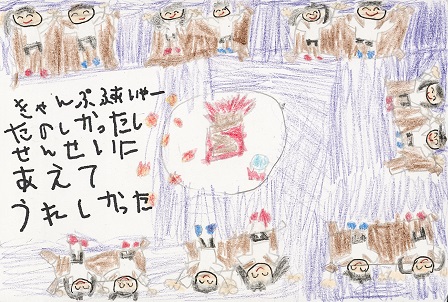 きゃんぷふぁいやー
たのしかったし
せんせいに
あえて
うれしかった